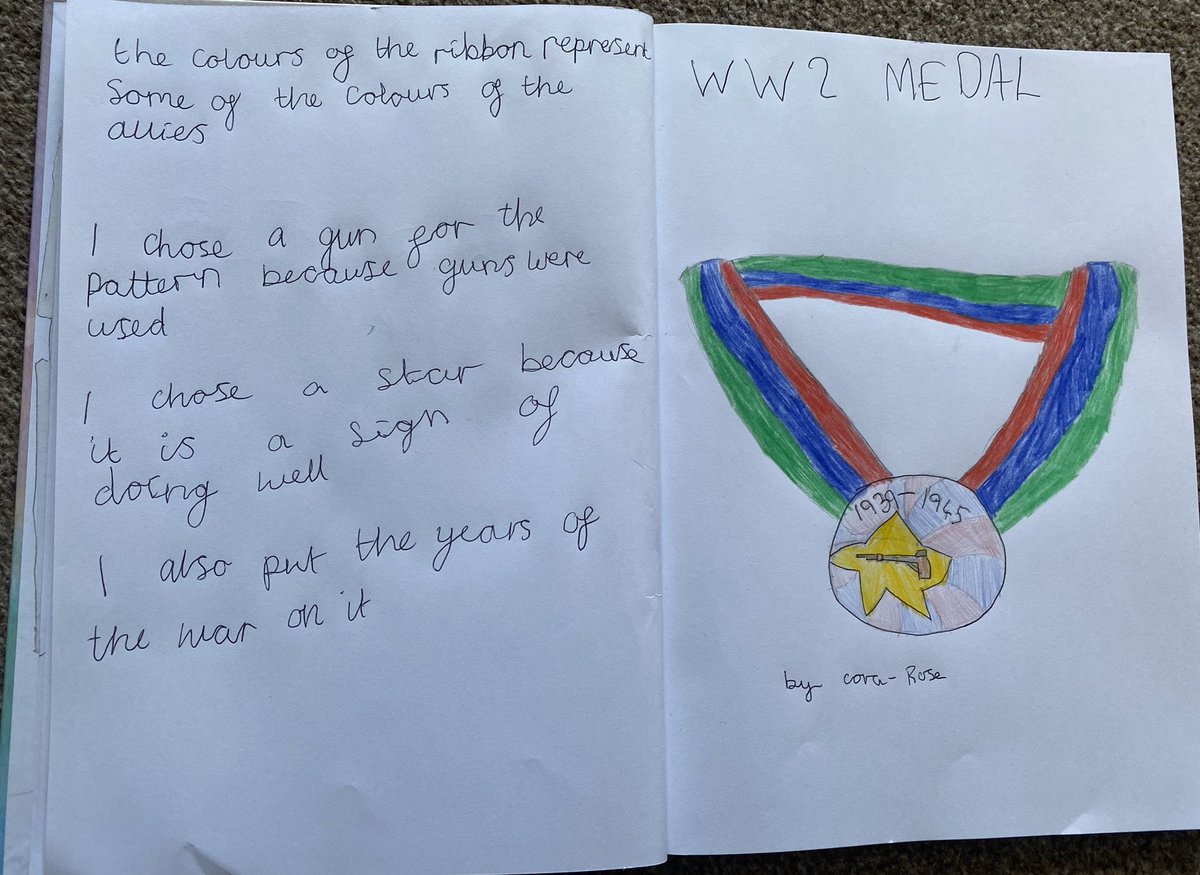 the colours of the ribbon represent
Some of the colours of the
allies
I chose a gun for the
pattern because guns were
used
I chose a star because
it is a sign of
doing well
I also put the years of
the war on it
WW2 MEDAL
1939-1945
by cora-Rose